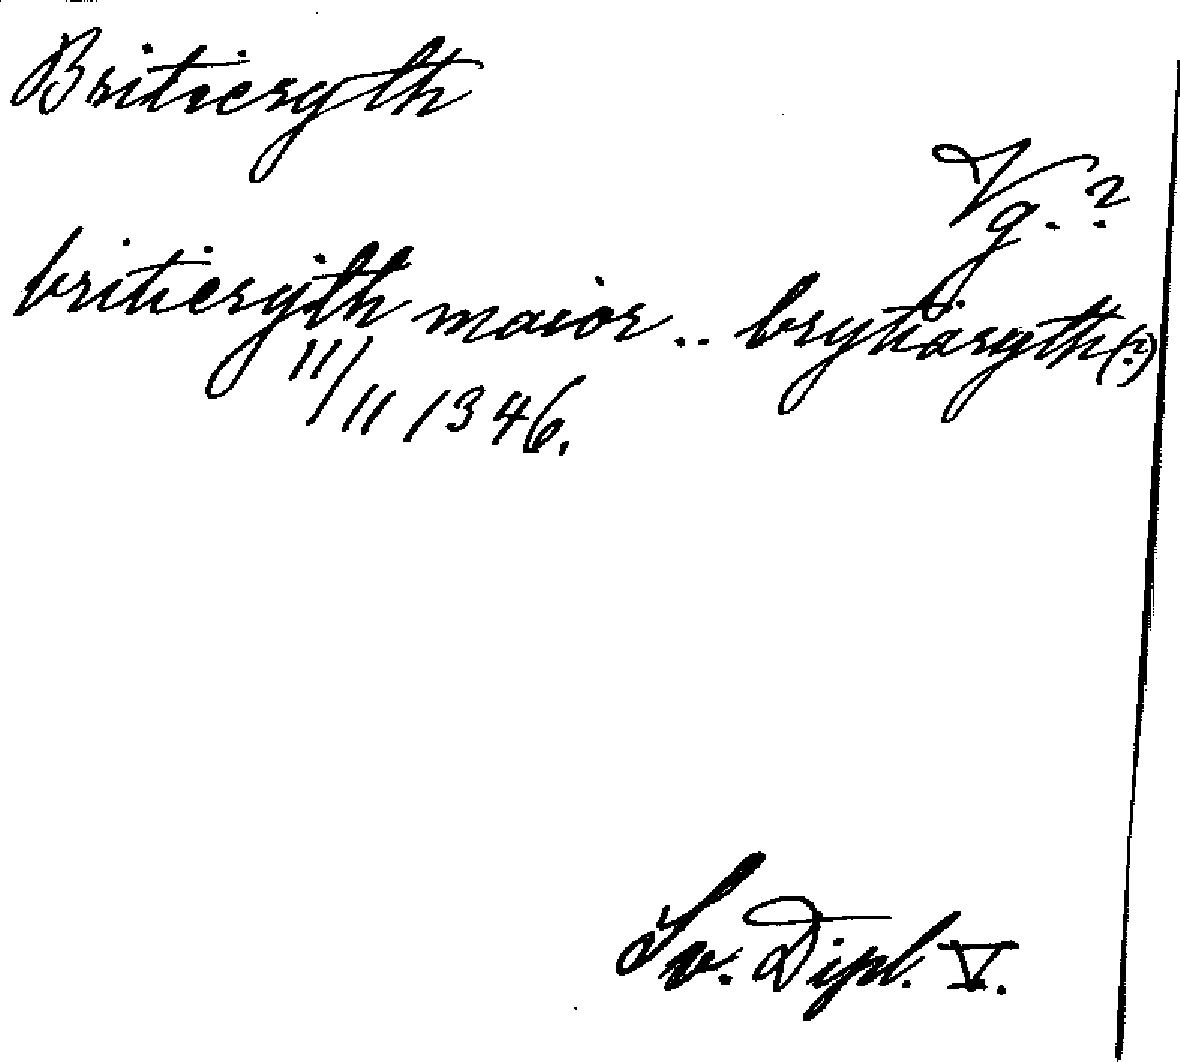 Britiergth
Vg.?
britiergith maior .. brytiargth(?)
11/11 1346.
Sv. Dipl. V.